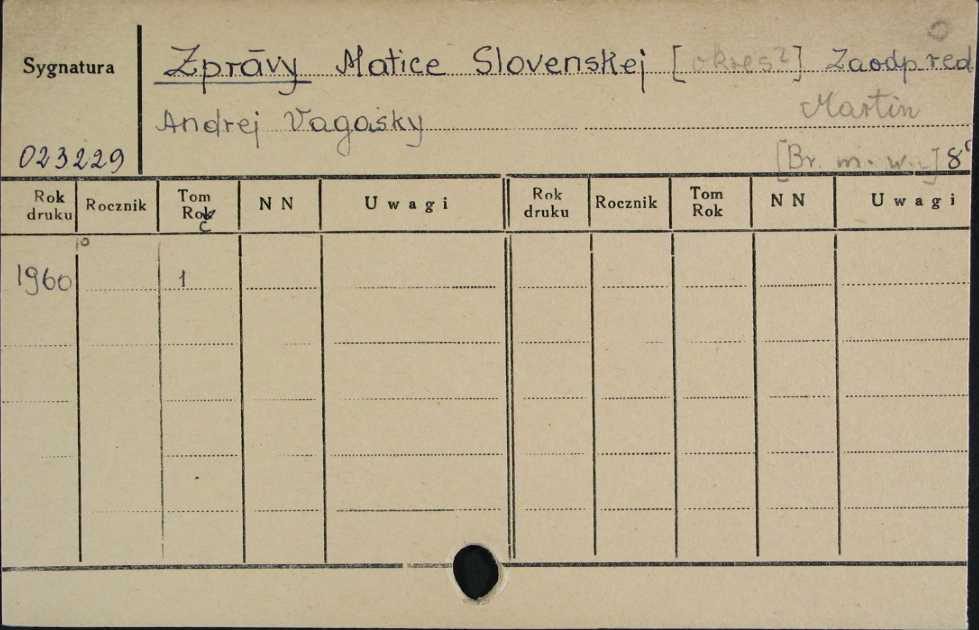 Sygnatura
Zprávy Matice Slovenskej [okres?] Zaodpred
Andrej Vagaský Martin
023229 [Br. m. w.] 8°
Rok druku Rocznik Tom Rok N N Uwagi Rok druku Rocznik Tom Rok N N Uwagi
c
1960 1